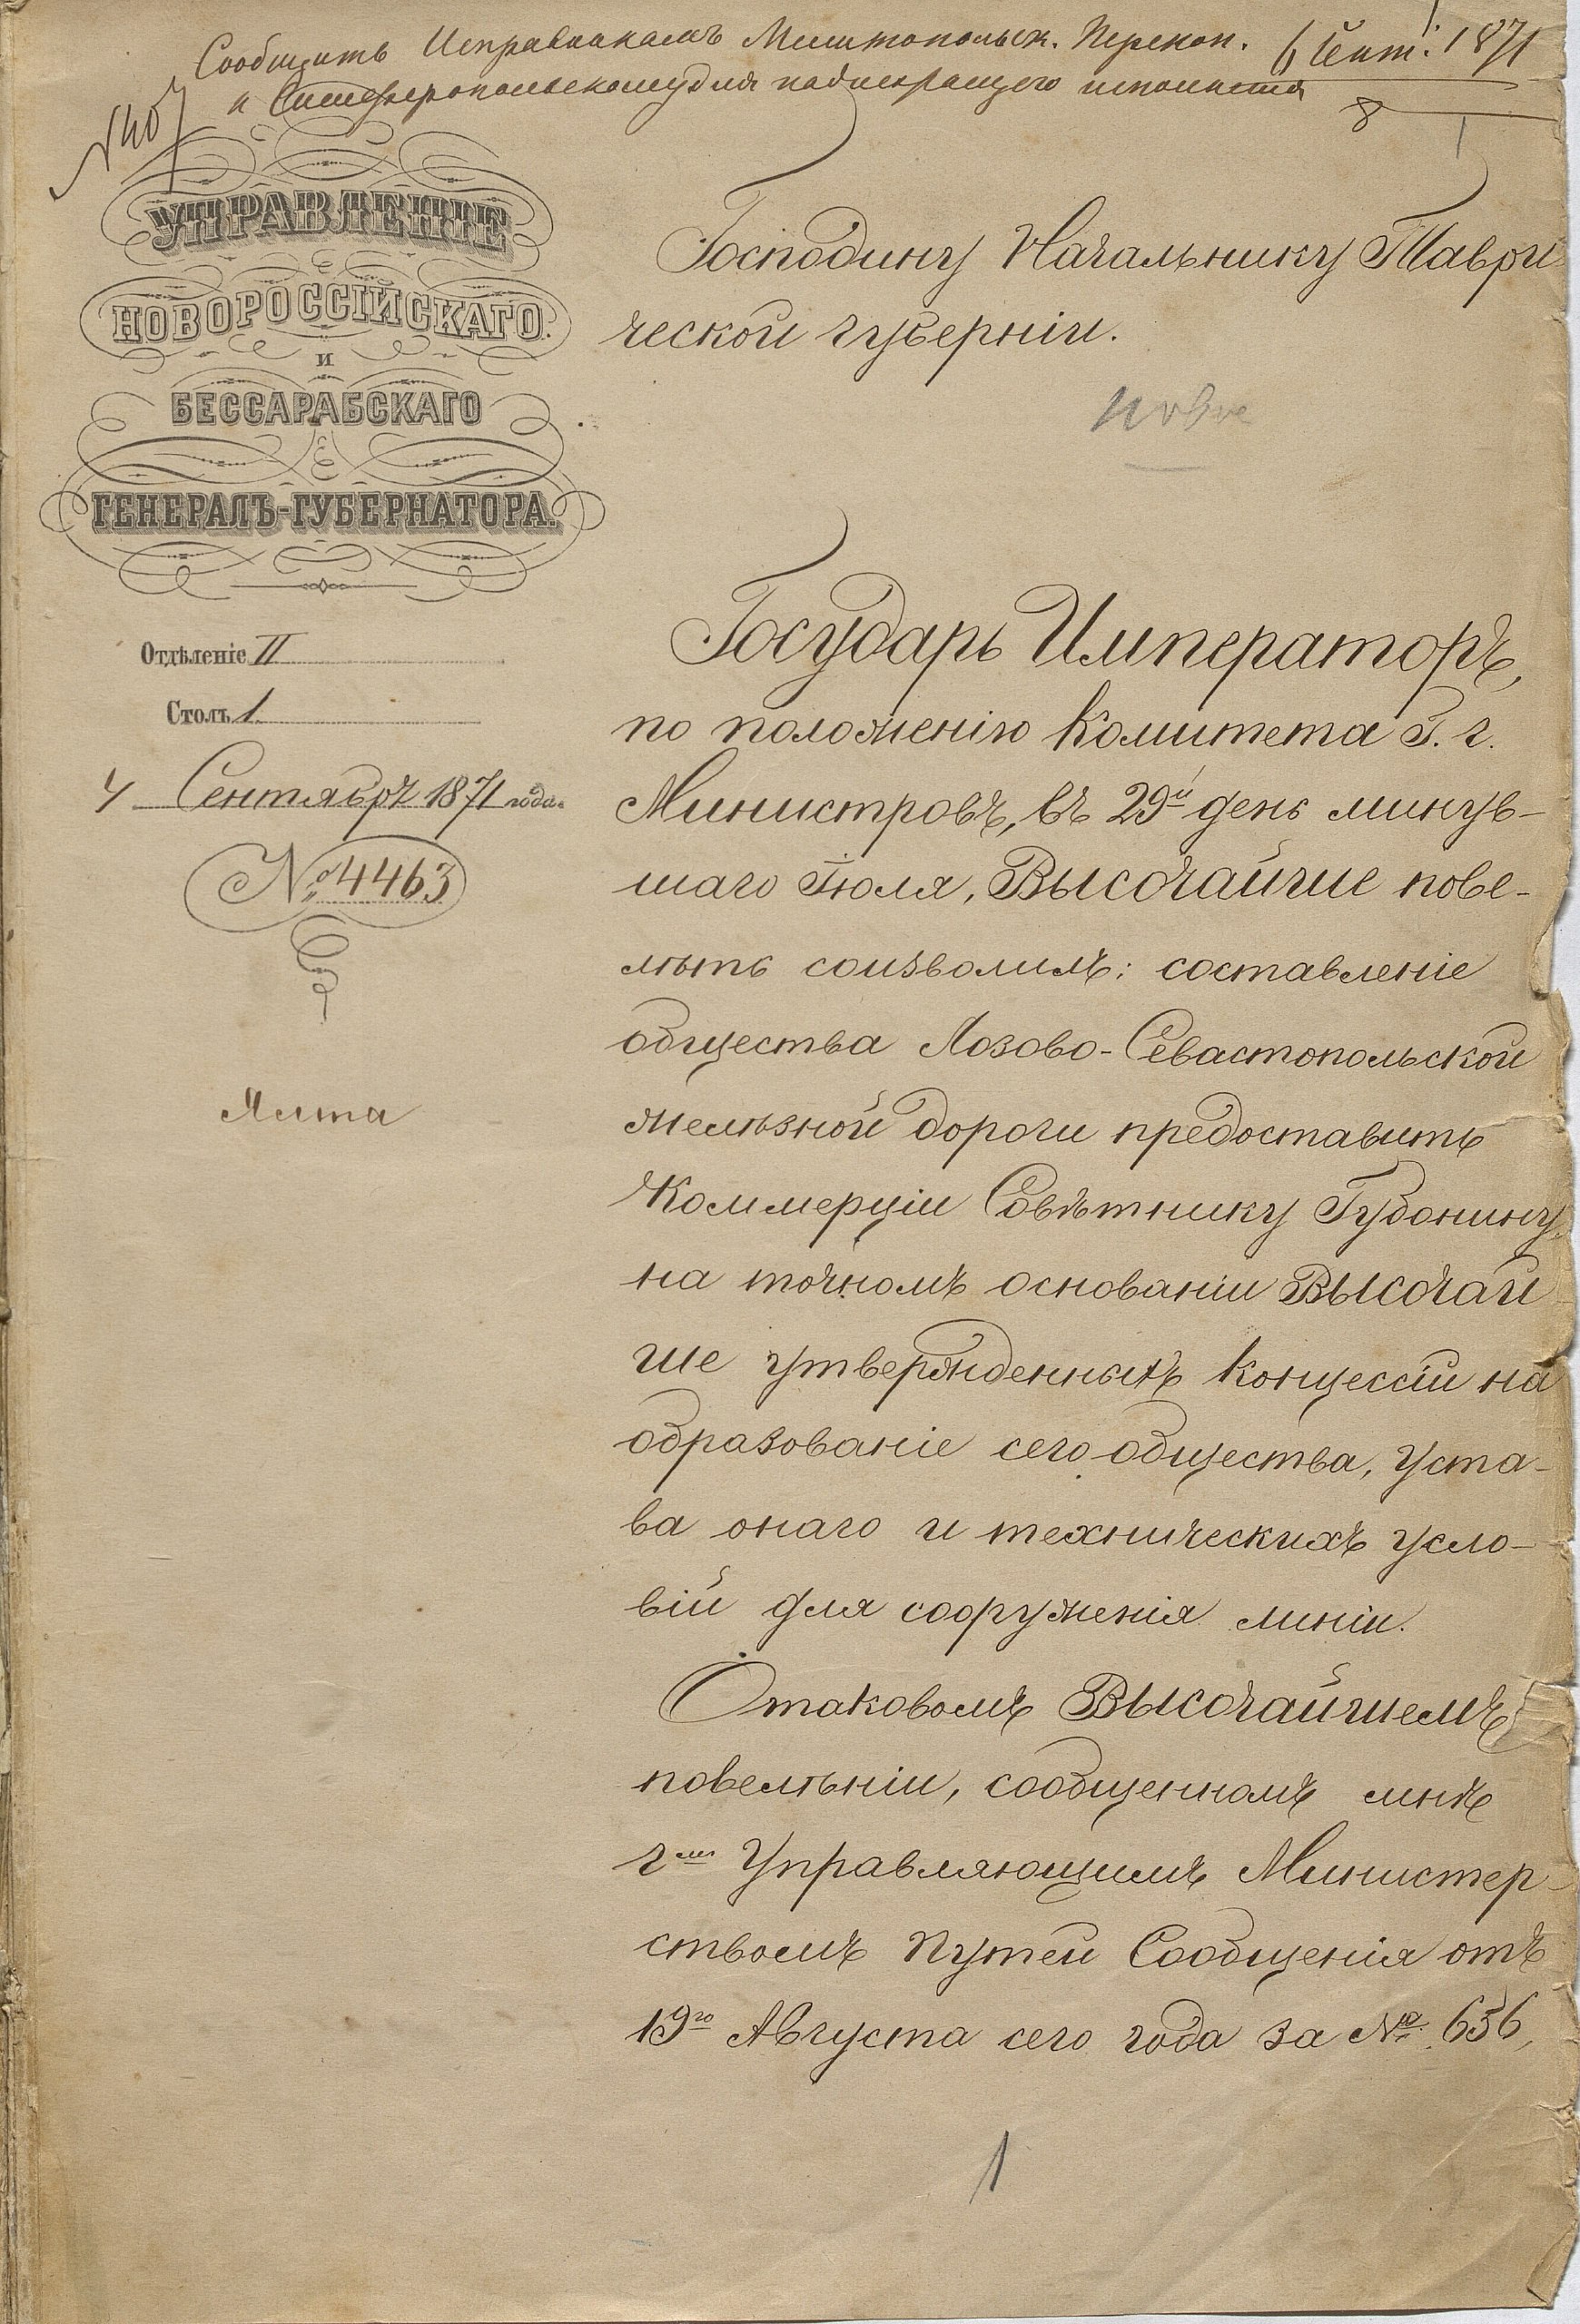 Сообщить Исправникамъ Мелитопольск. Перекоп.
и Симферопольскому для надлежащаго исполненія
6 Сент. 1871
8
1
№ 407
УПРАВЛЕНІЕ
НОВОРОССІЙСКАГО
И
БЕССАРАБСКАГО
ГЕНЕРАЛЪ-ГУБЕРНАТОРА.
Отдѣленіе II
Столъ 1.
4 Сентября 1871 года.
№ 4463
Ялта
Господину Начальнику Таври
ческой губерніи.
Государь Императоръ,
по положенію Комитета Г. г.
Министровъ, въ 29й день минув-
шаго Іюля, Высочайше пове-
лѣть соизволилъ: составленіе
общества Лозово-Севастопольской
желѣзной дороги предоставить
Коммерціи Совѣтнику Губонину,
на точномъ основаніи Высочай
ше утвержденныхъ концессіи на
образованіе сего общества, уста-
ва онаго и техническихъ усло-
вій для сооруженія линіи.
О таковомъ Высочайшемъ
повелѣніи, сообщенномъ мнѣ
г-мъ Управляющимъ Министер-
ствомъ Путей Сообщенія отъ
19го Августа сего года за № 636,
1